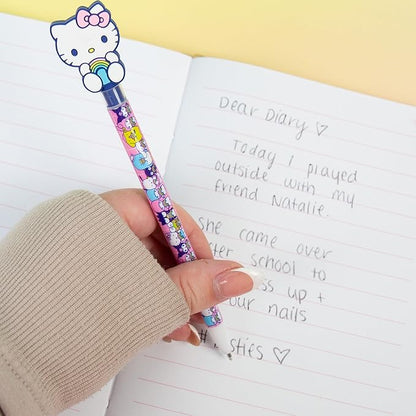 Dear Diary ♡
Today I played
outside with my
friend Natalie.
She came over
school to
up +
our nails
#
♡